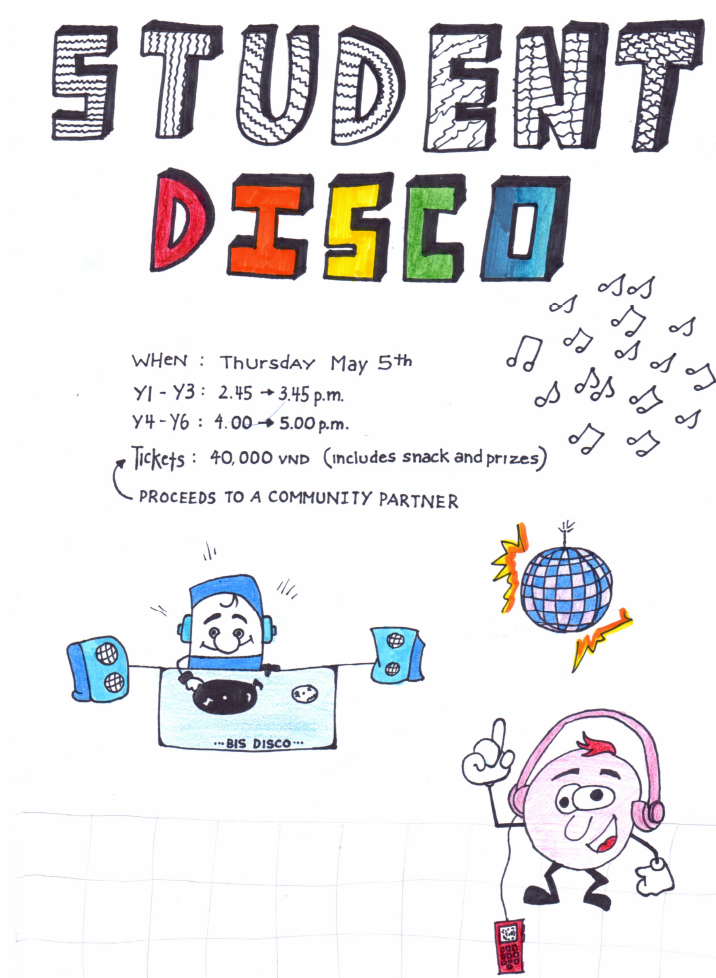 STUDENT
DISCO
WHeN : ThursdAY May 5th
Y1 - Y3 : 2.45 → 3.45 p.m.
Y4 - Y6 : 4.00 → 5.00 p.m.
Tickets : 40,000 VND (includes snack and prizes)
PROCEEDS TO A COMMUNITY PARTNER
...BIS DISCO...